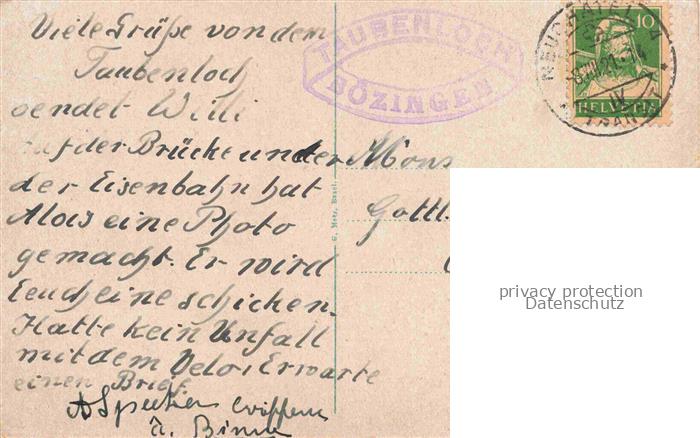 Viele Grüße von dem
Taubenloch
sendet Willi
Auf der Brücke under
der Eisenbahn hat
Alois eine Photo
gemacht. Er wird
Eeuch eine schicken.
Hatte kein Unfall
mit dem Velo. Erwarte
einen Brief.
TAUBENLOCH
BÖZINGEN
NEUCHATEL
TRANSIT
10
HELVETIA
Mons
Gottl.
G. Metz, Basel.
privacy protection
Datenschutz